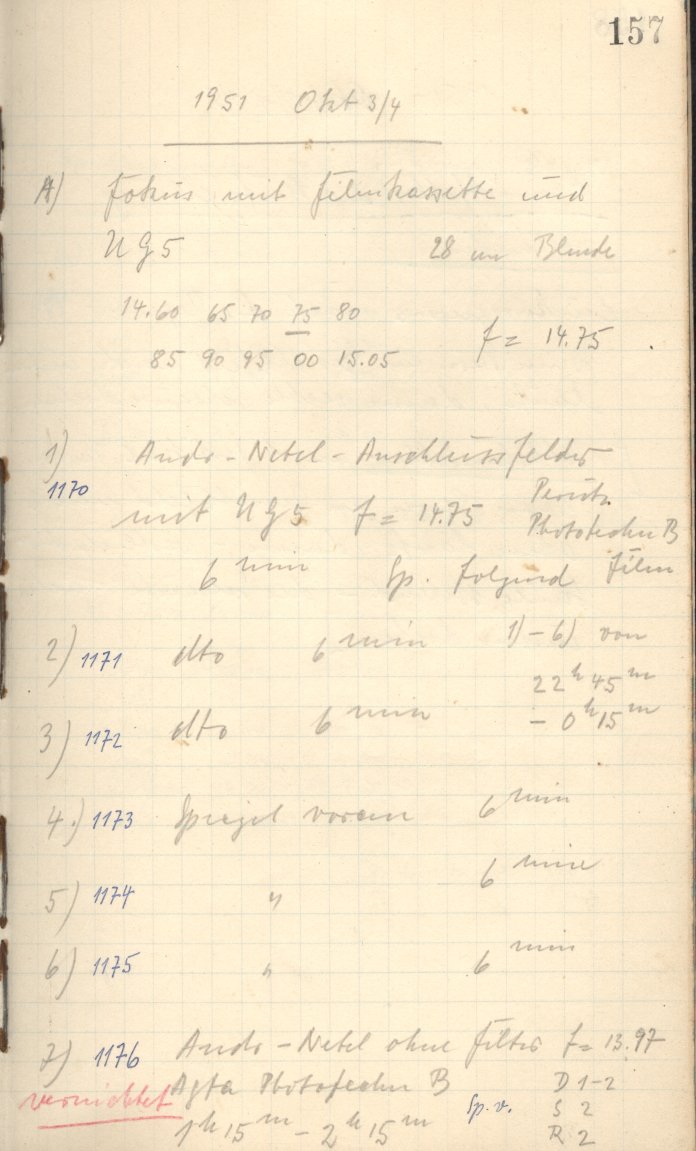 157
1951 Okt 3/4
A) Fokus mit Filmkassette und
UG5 28 cm Blende
14.60 65 70 75 80
f = 14.75
85 90 95 00 15.05
1) Andr-Nebel-Anschlussfelder
1170
mit UG5 f = 14.75 Perutz
Phototechn B
6 min Sp. folgend Film
2) 1171 dto 6 min 1)-6) von
22h 45m
3) 1172 dto 6 min - 0h 15m
4.) 1173 Spiegel voran 6 min
5) 1174 " 6 min
6) 1175 " 6 min
7) 1176 Andr-Nebel ohne Filter f = 13.97
vernichtet Agfa Phototechn B D 1-2
Sp. v. S 2
1h 15m - 2h 15m R 2